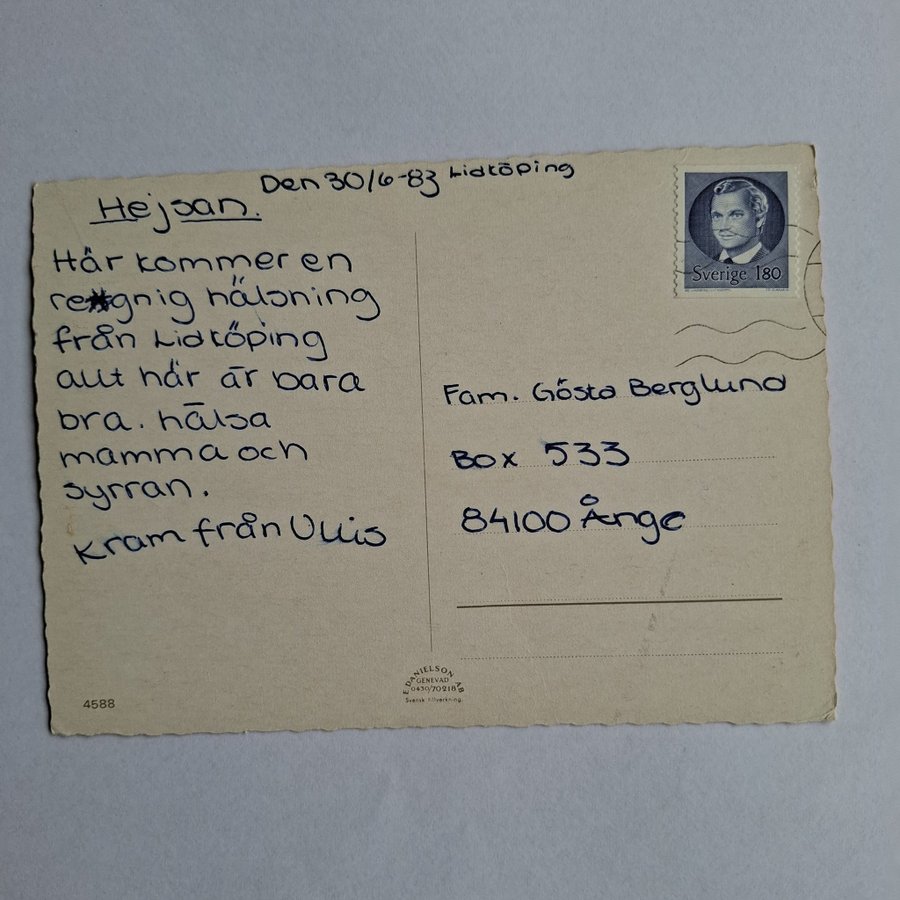 Den 30/6-83 Lidköping
Hejsan.
Här kommer en
regnig hälsning
från Lidköping
allt här är bara
bra. hälsa
mamma och
syrran.
Kram från Ullis
Sverige 180
Fam. Gösta Berglund
Box 533
84100 Ånge
E. DANIELSON AB
GENEVAD
0430/70218
Svensk tillverkning.
4588